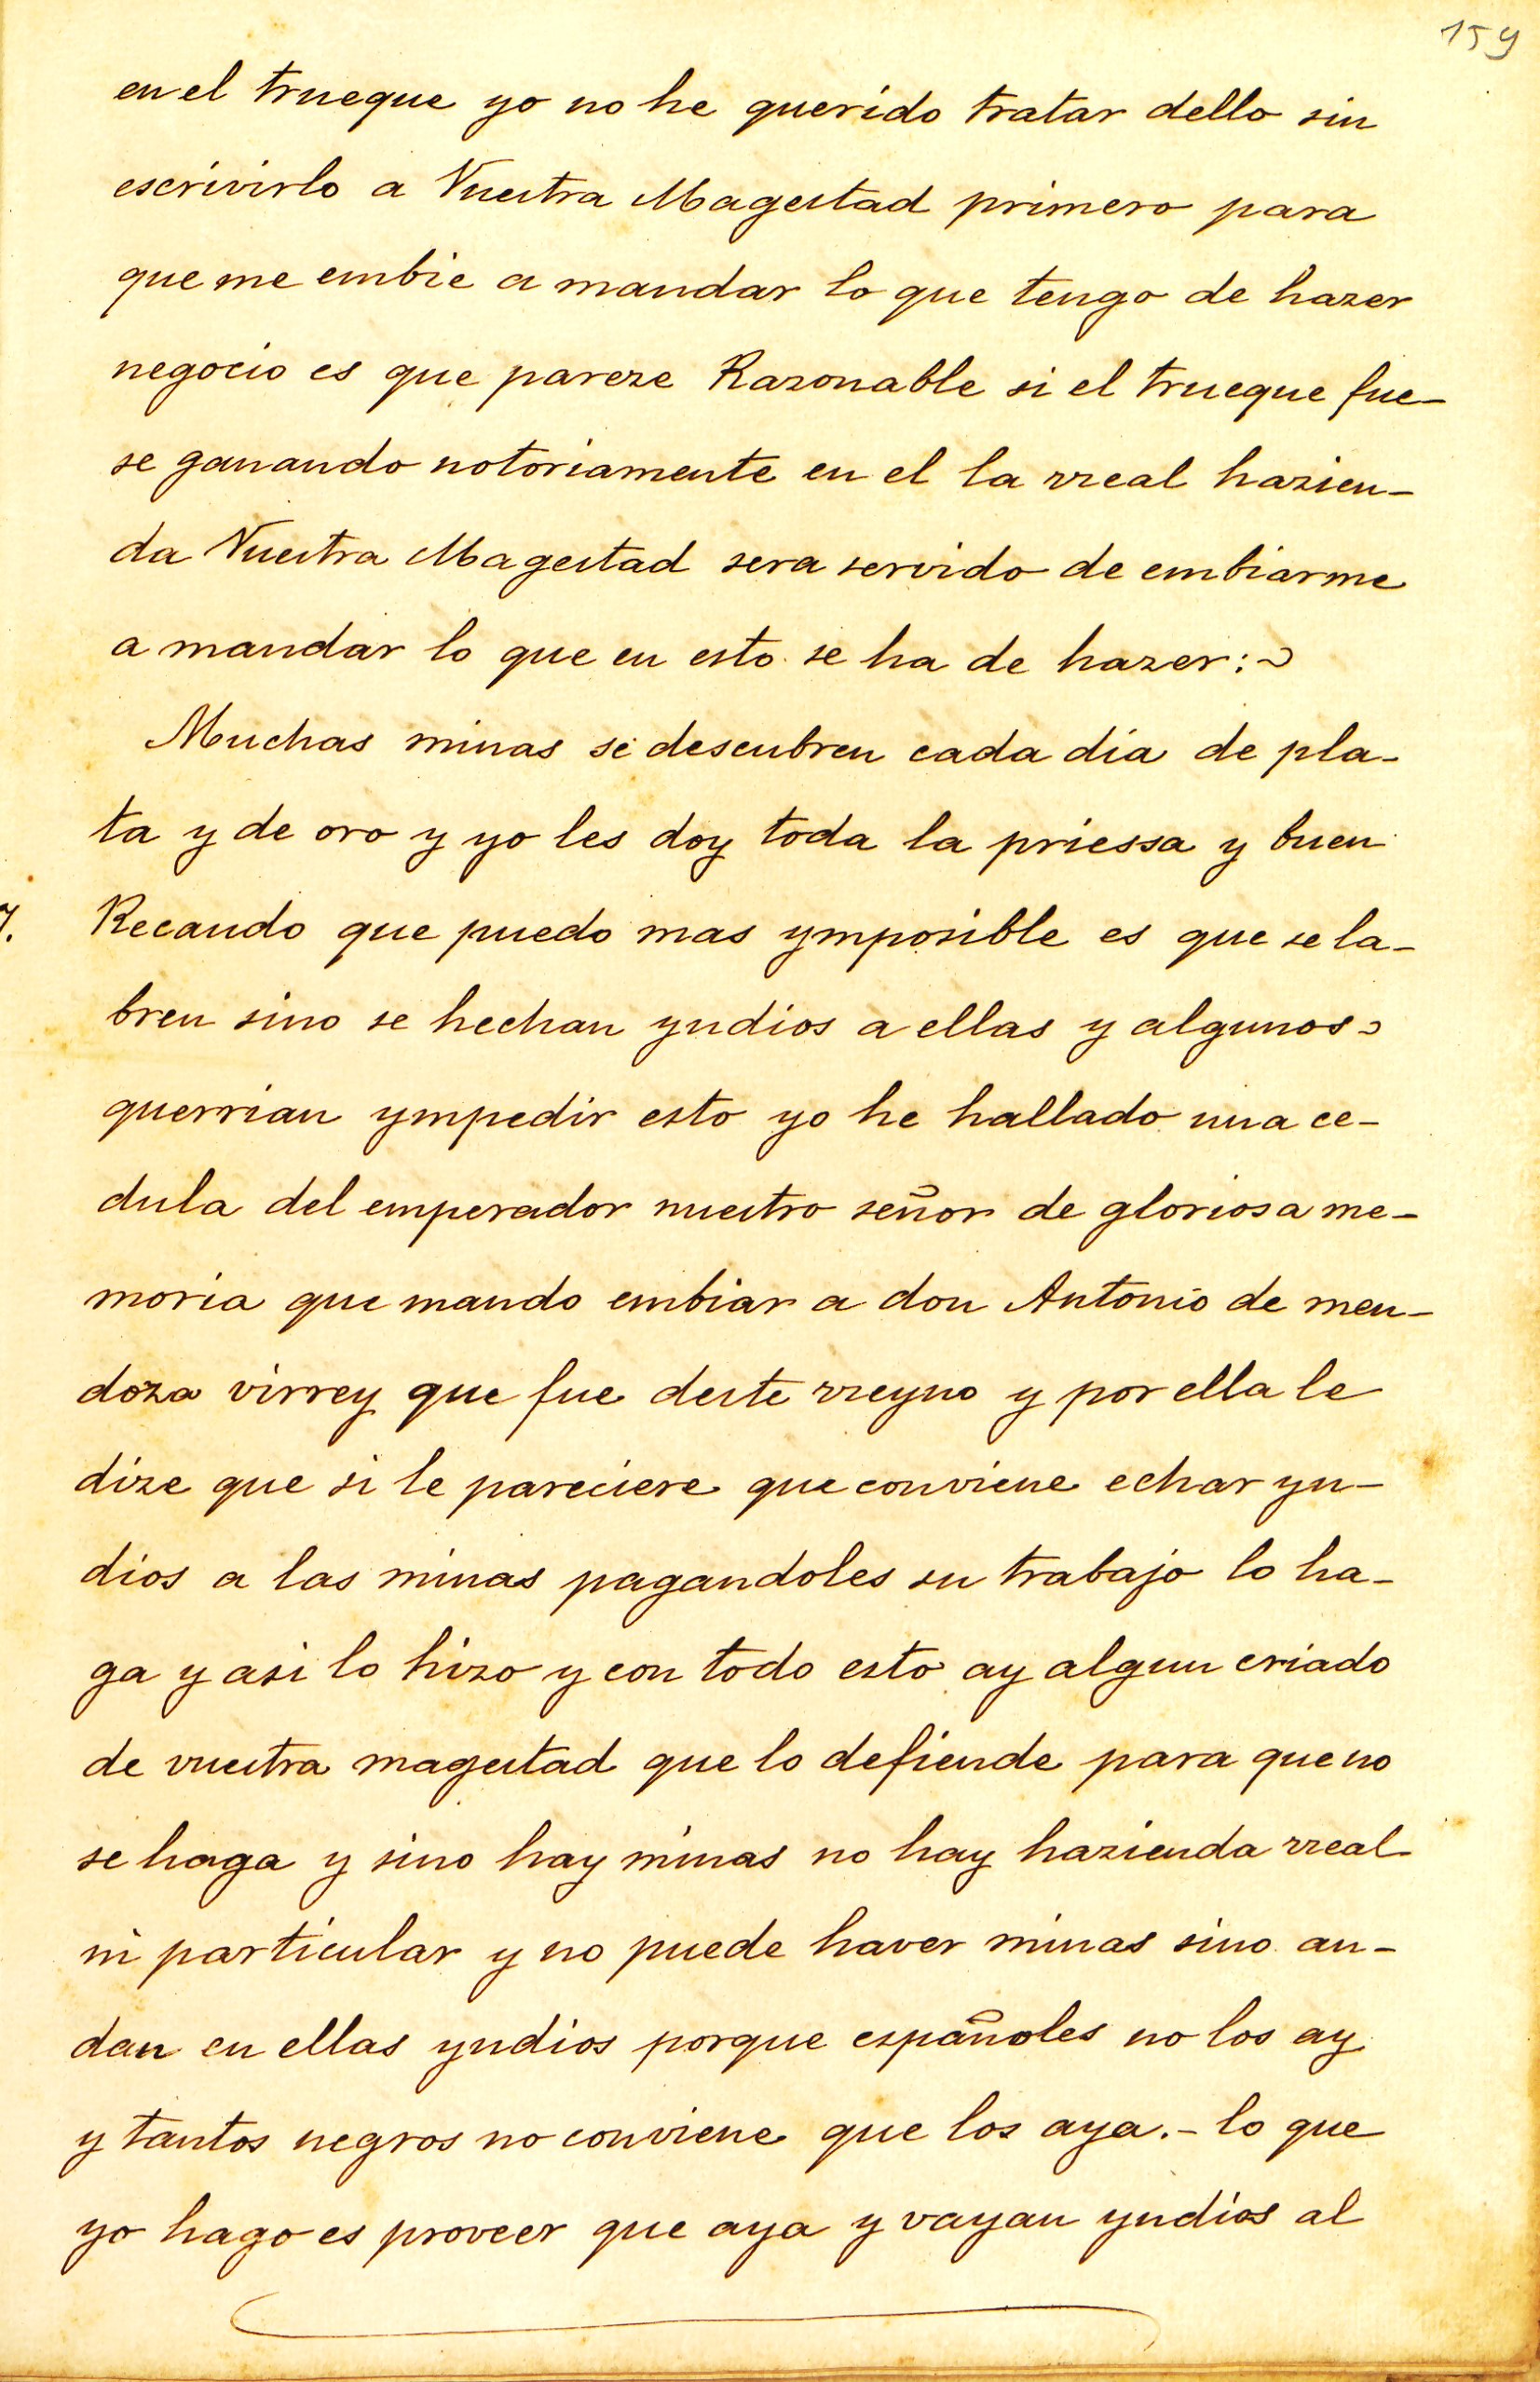 159
en el trueque yo no he querido tratar dello sin
escrivirlo a Vuestra Magestad primero para
que me embie a mandar lo que tengo de hazer
negocio es que pareze Razonable si el trueque fue-
se ganando notoriamente en el la rreal hazien-
da Vuestra Magestad sera servido de embiarme
a mandar lo que en esto se ha de hazer:~
Muchas minas se descubren cada dia de pla-
ta y de oro y yo les doy toda la priessa y buen
Recaudo que puedo mas ymposible es que se la-
bren sino se hechan yndios a ellas y algunos
querrian ympedir esto yo he hallado una ce-
dula del emperador nuestro señor de gloriosa me-
moria que mando embiar a don Antonio de men-
doza virrey que fue deste rreyno y por ella le
dize que si le pareciere que conviene echar yn-
dios a las minas pagandoles su trabajo lo ha-
ga y asi lo hizo y con todo esto ay algun criado
de vuestra magestad que lo defiende para que no
se haga y sino hay minas no hay hazienda rreal
ni particular y no puede haver minas sino an-
dan en ellas yndios porque españoles no los ay
y tantos negros no conviene que los aya.- lo que
yo hago es proveer que aya y vayan yndios al